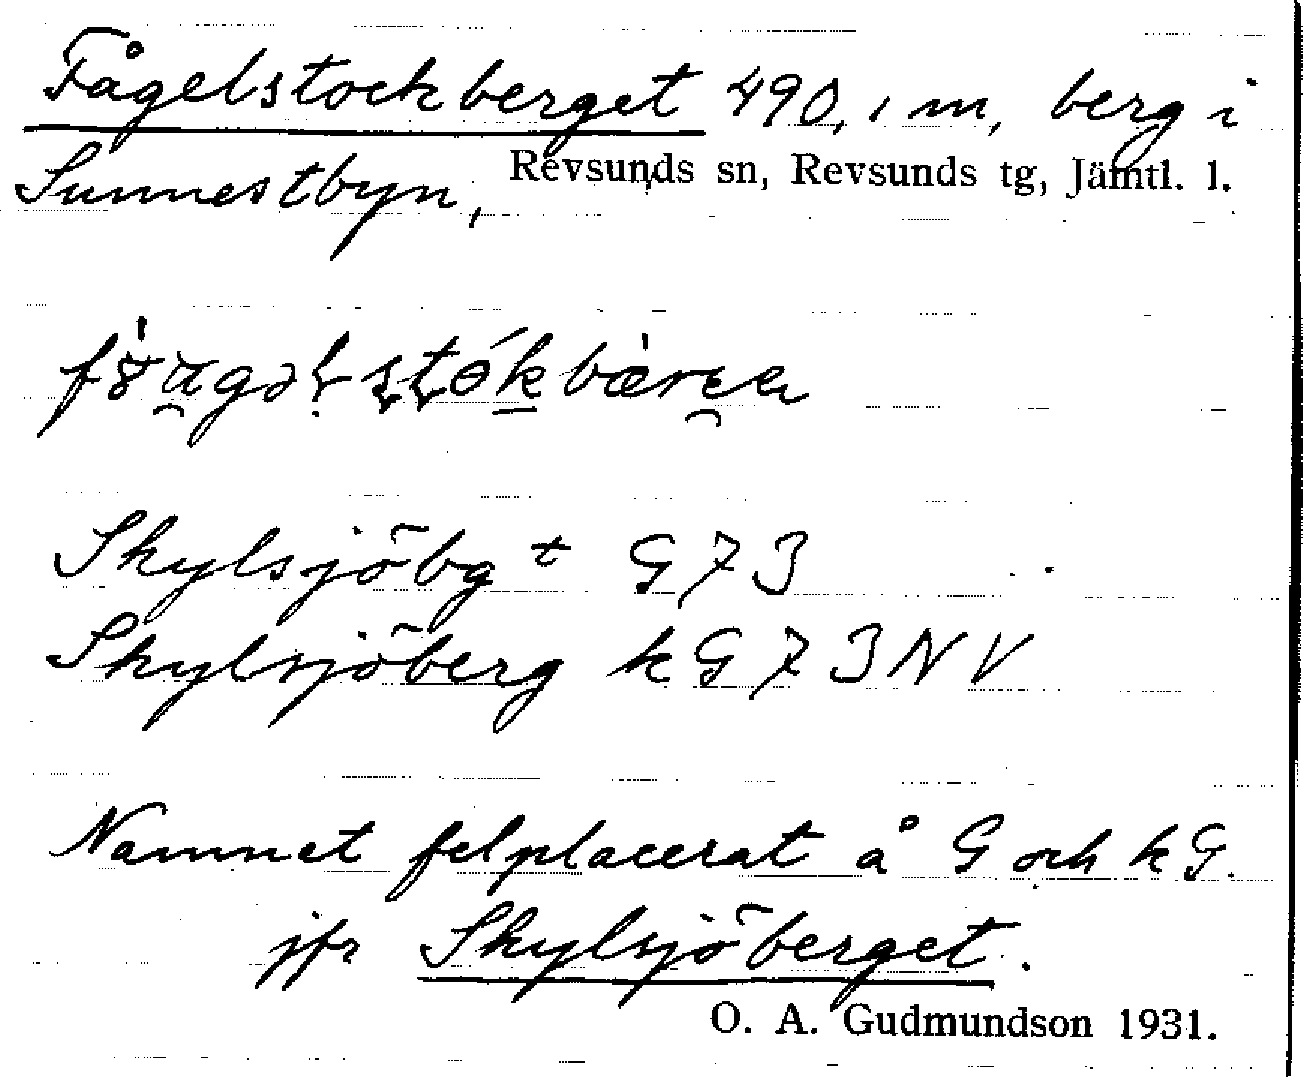 Fågelstockberget 490,1 m, berg i
Sunnestbyn, Revsunds sn, Revsunds tg, Jämtl. l.
Skylsjöbgt G 73
Skylsjöberg kG 73 NV
Namnet felplacerat å G och kG.
jfr Skylsjöberget.
O. A. Gudmundson 1931.